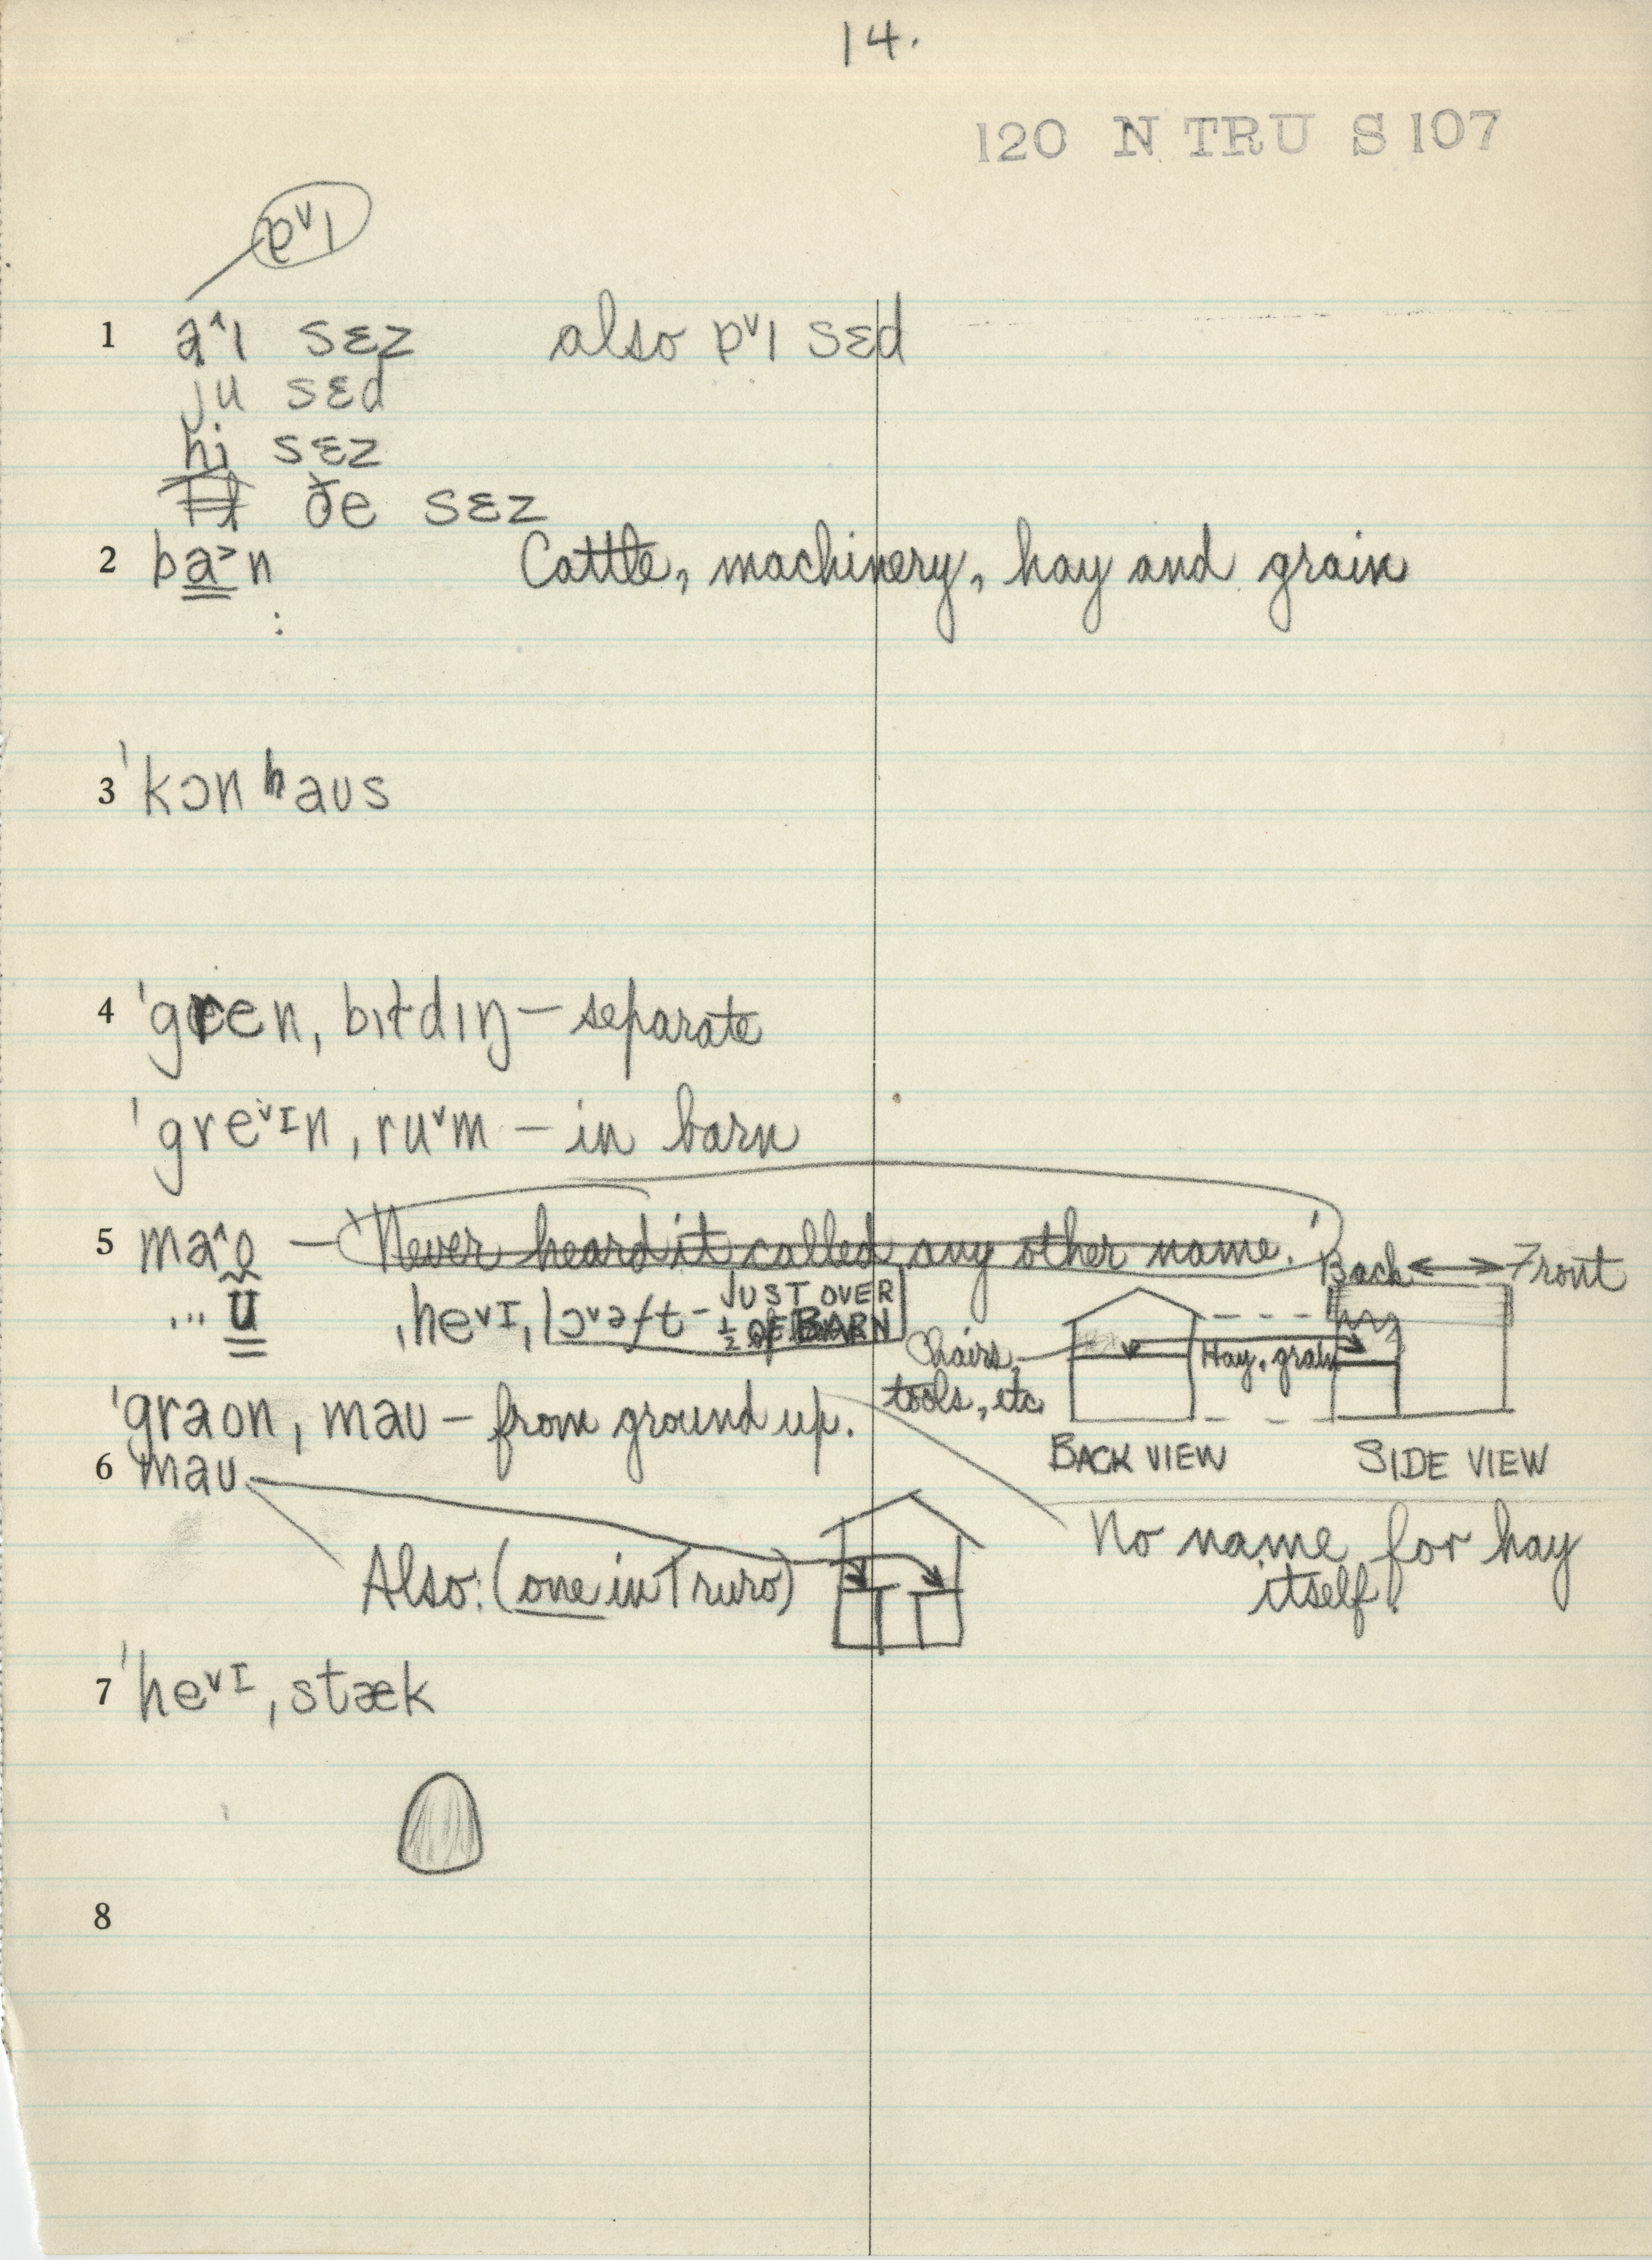 14.
120 N TRU S 107
ɐ˅ı
1 a˄ı sɛz also ɐ˅ı sɛd
ju sɛd
hi sɛz
ðe sɛz
2 ba˃n Cattle, machinery, hay and grain
:
3 ˈkɔn haus
4 ˈgren ˌbıɫdıŋ – separate
ˈgre˅ɪn ˌru˅m – in barn
5 ma˄o̰ – 'Never heard it called any other name.' Back ↔ Front
... u ˌhe˅ɪ ˌlɔ˅əft – JUST OVER
½ OF BARN
Chairs, tools, etc.
Hay, grain
ˈgraon ˌmau – from ground up.
BACK VIEW SIDE VIEW
6 mau
No name for hay
itself.
Also: (one in Truro)
7 ˈhe˅ɪ ˌstæk
8